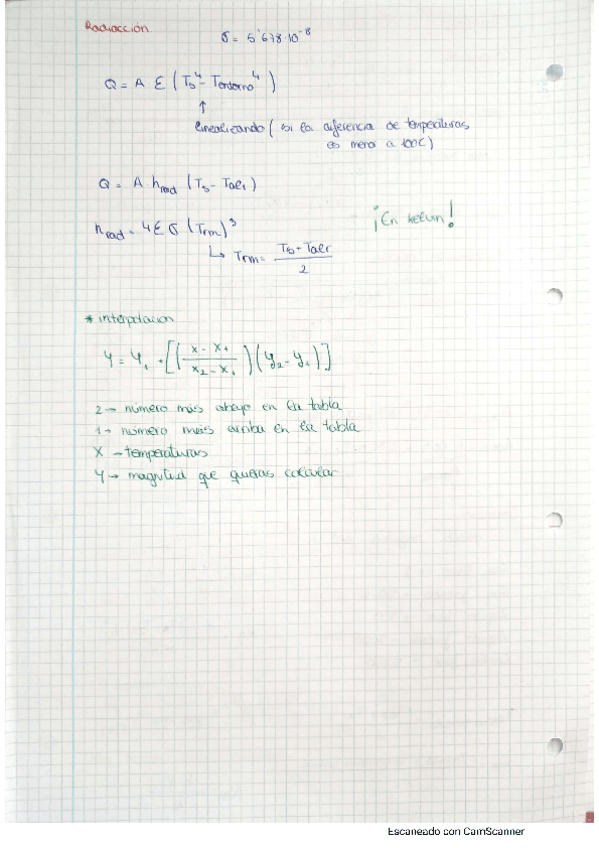 Radiacción
σ = 5'678·10⁻⁸
Q = A ε (Ts⁴ - Tentorno⁴)
↑
linealizando (si la diferencia de temperaturas
es menor a 100C)
Q = A hrad (Ts - Taer)
¡En kelvin!
hrad = 4 ε σ (Trm)³
↳ Trm = (Ts + Taer) / 2
* interpolacion
y = y₁ + [((x - x₁) / (x₂ - x₁)) (y₂ - y₁)]
2 → número más abajo en la tabla
1 → número más arriba en la tabla
X → temperaturas
Y → magnitud que quieras calcular
Escaneado con CamScanner